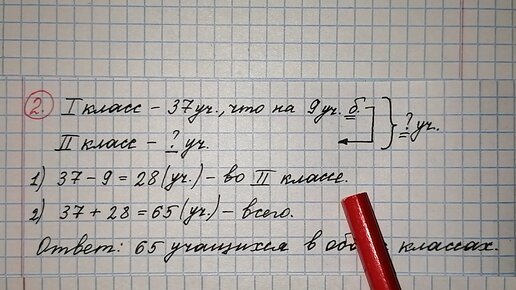 2. I класс – 37 уч., что на 9 уч. б. } ? уч.
II класс – ? уч.
1) 37 – 9 = 28 (уч.) – во II классе.
2) 37 + 28 = 65 (уч.) – всего.
Ответ: 65 учащихся в классах.